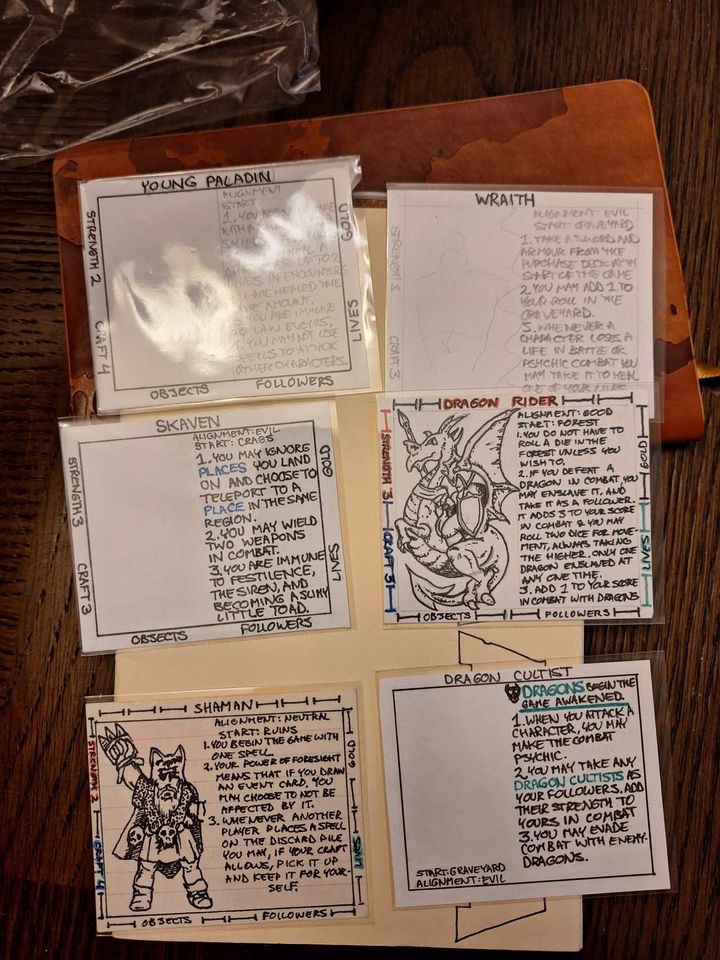 YOUNG PALADIN
ALIGNMENT
START
1. YOU BEGIN
UP TO 2
LIVES IN ENCOUNTERS
YOU ARE HEALED THE
SAME AMOUNT.
YOU ARE IMMUNE
TO LAW EVENTS.
YOU MAY NOT USE
SPELLS TO ATTACK
OTHER CHARACTERS.
STRENGTH 2
CRAFT 4
GOLD
LIVES
OBJECTS
FOLLOWERS
WRAITH
ALIGNMENT: EVIL
START: GRAVEYARD
1. TAKE A SWORD AND
ARMOUR FROM THE
PURCHASE DECK WITH
START OF THE GAME
2. YOU MAY ADD 1 TO
YOUR ROLL IN THE
GRAVEYARD.
3. WHENEVER A
CHARACTER LOSES A
LIFE IN BATTLE OR
PSYCHIC COMBAT YOU
MAY TAKE IT TO HEAL
ONE OF YOUR
STRENGTH
CRAFT 3
SKAVEN
ALIGNMENT: EVIL
START: CRAGS
1. YOU MAY IGNORE
PLACES YOU LAND
ON AND CHOOSE TO
TELEPORT TO A
PLACE IN THE SAME
REGION.
2. YOU MAY WIELD
TWO WEAPONS
IN COMBAT.
3. YOU ARE IMMUNE
TO PESTILENCE,
THE SIREN, AND
BECOMING A SLIMY
LITTLE TOAD.
STRENGTH 3
CRAFT 3
GOLD
LIVES
OBJECTS
FOLLOWERS
DRAGON RIDER
ALIGNMENT: GOOD
START: FOREST
1. YOU DO NOT HAVE TO
ROLL A DIE IN THE
FOREST UNLESS YOU
WISH TO.
2. IF YOU DEFEAT A
DRAGON IN COMBAT YOU
MAY ENSLAVE IT, AND
TAKE IT AS A FOLLOWER.
IT ADDS 3 TO YOUR SCORE
IN COMBAT & YOU MAY
ROLL TWO DICE FOR MOVE-
MENT, ALWAYS TAKING
THE HIGHER. ONLY ONE
DRAGON ENSLAVED AT
ANY ONE TIME.
3. ADD 1 TO YOUR SCORE
IN COMBAT WITH DRAGONS
STRENGTH 3
CRAFT 3
GOLD
LIVES
OBJECTS
FOLLOWERS
SHAMAN
ALIGNMENT: NEUTRAL
START: RUINS
1. YOU BEGIN THE GAME WITH
ONE SPELL.
2. YOUR POWER OF FORESIGHT
MEANS THAT IF YOU DRAW
AN EVENT CARD, YOU
MAY CHOOSE TO NOT BE
AFFECTED BY IT.
3. WHENEVER ANOTHER
PLAYER PLACES A SPELL
ON THE DISCARD PILE
YOU MAY, IF YOUR CRAFT
ALLOWS, PICK IT UP
AND KEEP IT FOR YOUR-
SELF.
STRENGTH 2
CRAFT 4
GOLD
LIVES
OBJECTS
FOLLOWERS
DRAGON CULTIST
DRAGONS BEGIN THE
GAME AWAKENED.
1. WHEN YOU ATTACK A
CHARACTER, YOU MAY
MAKE THE COMBAT
PSYCHIC.
2. YOU MAY TAKE ANY
DRAGON CULTISTS AS
YOUR FOLLOWERS. ADD
THEIR STRENGTH TO
YOURS IN COMBAT
3. YOU MAY EVADE
COMBAT WITH ENEMY-
DRAGONS.
START: GRAVEYARD
ALIGNMENT: EVIL